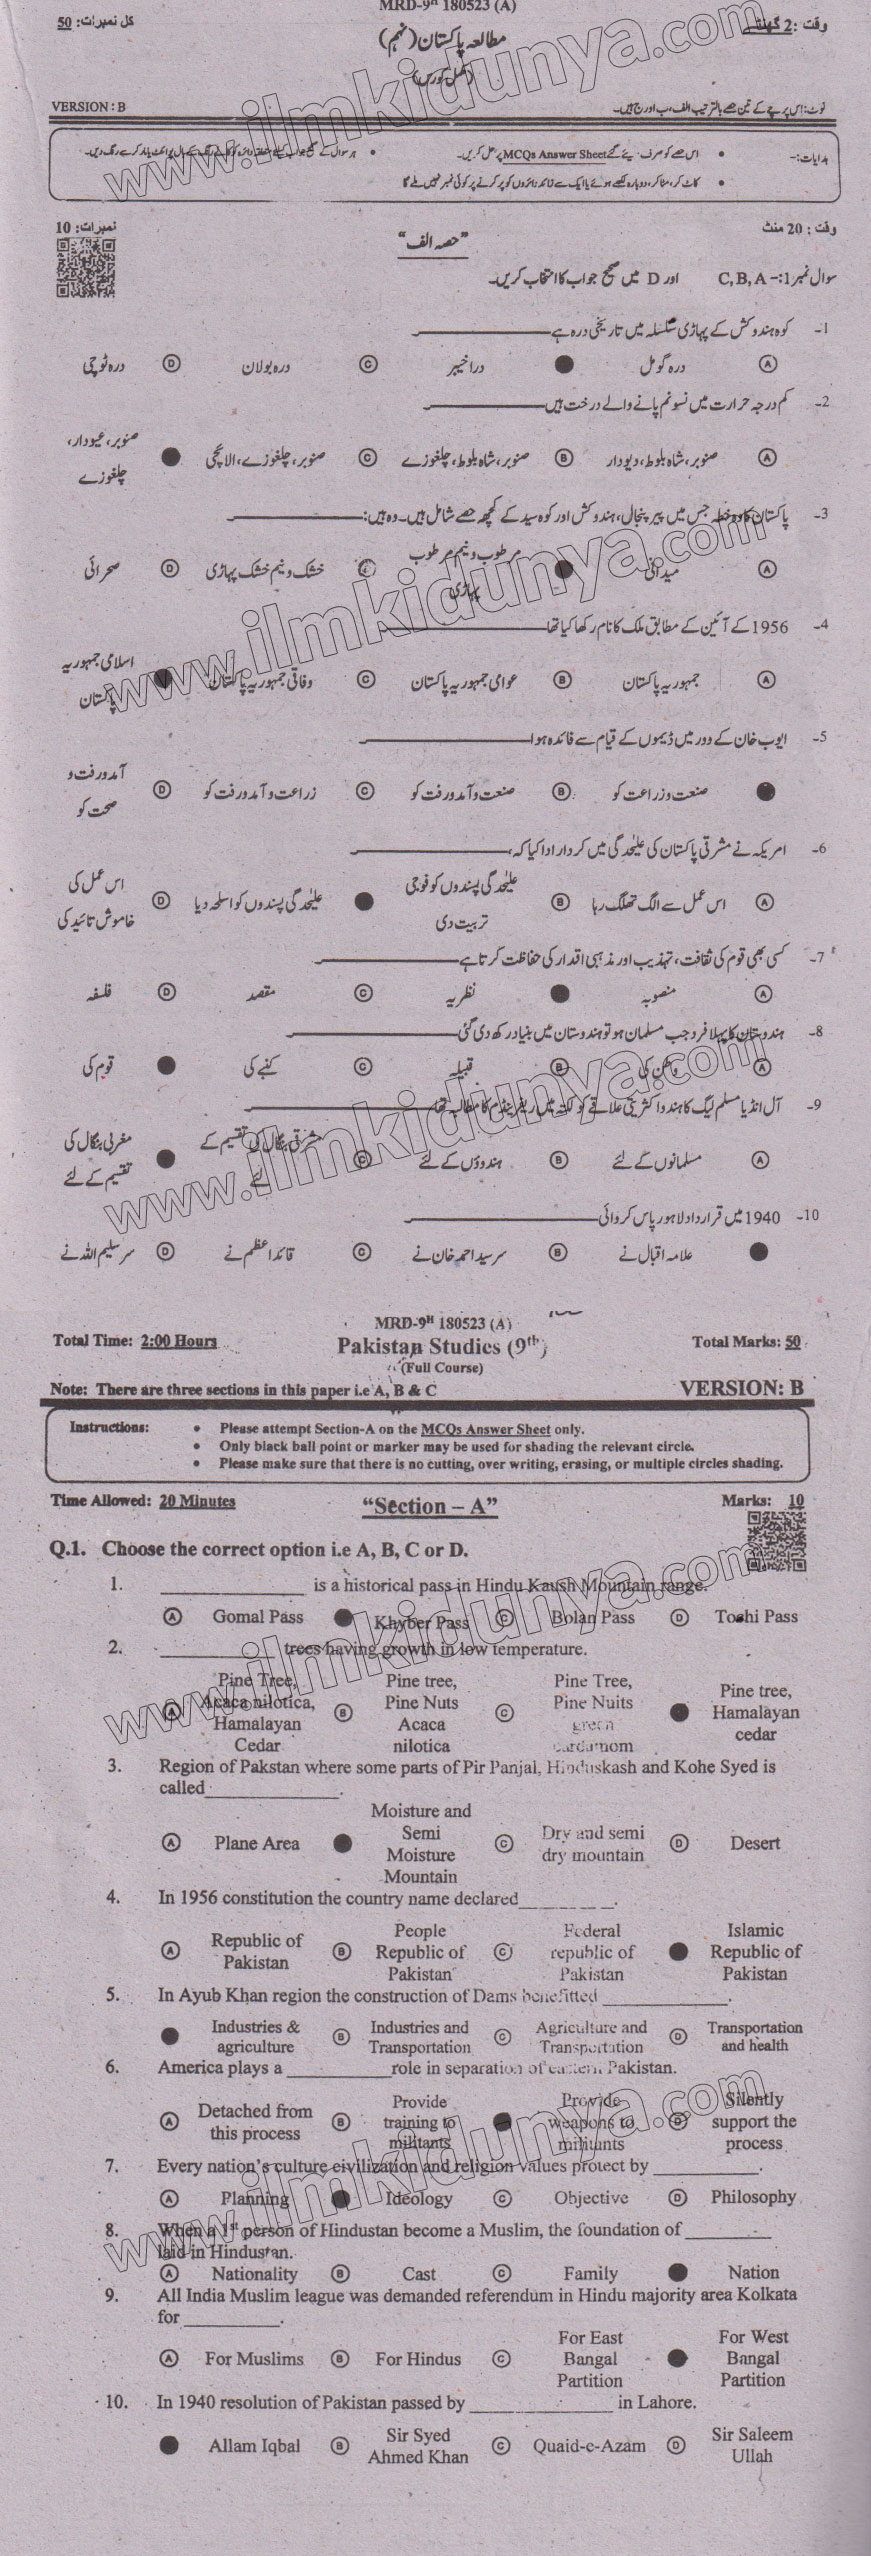 MRD-9H 180523 (A)
وقت : 2 گھنٹے
مطالعہ پاکستان (نہم)
کل نمبرات: 50
(مکمل کورس)
نوٹ: اس پرچے کے تین حصے بالترتیب الف، ب اور ج ہیں۔
VERSION : B
ہدایات:-
• اس حصے کو صرف دیئے گئے MCQs Answer Sheet پر حل کریں۔
• کاٹ کر، مٹا کر، دوبارہ لکھے ہوئے یا ایک سے زائد دائروں کو پر کرنے پر کوئی نمبر نہیں ملے گا
وقت : 20 منٹ
"حصہ الف"
نمبرات: 10
سوال نمبر 1:- C, B, A اور D میں صحیح جواب کا انتخاب کریں۔
1- کوہ ہندوکش کے پہاڑی سلسلہ میں تاریخی درہ ہے
A درہ گومل درا خیبر C درہ بولان D درہ ٹوچی
2- کم درجہ حرارت میں نشونم پانے والے درخت ہیں
A صنوبر، شاہ بلوط، دیودار B صنوبر، شاہ بلوط، چلغوزے C صنوبر، چلغوزے، الائچی صنوبر، عیودار، چلغوزے
3- پاکستان کا وہ خطہ جس میں پیر پنجال، ہندوکش اور کوہ سید کے کچھ حصے شامل ہیں۔ وہ ہیں:
A میدانی مرطوب و نیم مرطوب پہاڑی C خشک و نیم خشک پہاڑی D صحرائی
4- 1956 کے آئین کے مطابق ملک کا نام رکھا گیا تھا
A جمہوریہ پاکستان B عوامی جمہوریہ پاکستان C وفاقی جمہوریہ پاکستان اسلامی جمہوریہ پاکستان
5- ایوب خان کے دور میں ڈیموں کے قیام سے فائدہ ہوا
صنعت و زراعت کو B صنعت و آمدورفت کو C زراعت و آمدورفت کو D آمدورفت و صحت کو
6- امریکہ نے مشرقی پاکستان کی علیحدگی میں کردار ادا کیا کہ،
A اس عمل سے الگ تھلگ رہا B علیحدگی پسندوں کو فوجی تربیت دی علیحدگی پسندوں کو اسلحہ دیا D اس عمل کی خاموش تائید کی
7- کسی بھی قوم کی ثقافت، تہذیب اور مذہبی اقدار کی حفاظت کرتا ہے
A منصوبہ نظریہ C مقصد D فلسفہ
8- ہندوستان کا پہلا فرد جب مسلمان ہو تو ہندوستان میں بنیاد رکھ دی گئی
A وطن کی B قبیلہ C کنبے کی قوم کی
9- آل انڈیا مسلم لیگ کا ہندو اکثریتی علاقے کو کلکتہ میں ریفرینڈم کا مطالبہ تھا
A مسلمانوں کے لئے B ہندوؤں کے لئے C مشرقی بنگال کی تقسیم کے لئے مغربی بنگال کی تقسیم کے لئے
10- 1940 میں قرارداد لاہور پاس کروائی
علامہ اقبال نے B سر سید احمد خان نے C قائد اعظم نے D سر سلیم اللہ نے
MRD-9H 180523 (A)
Total Time: 2:00 Hours Pakistan Studies (9th) Total Marks: 50
(Full Course)
Note: There are three sections in this paper i.e A, B & C VERSION: B
Instructions: • Please attempt Section-A on the MCQs Answer Sheet only.
• Only black ball point or marker may be used for shading the relevant circle.
• Please make sure that there is no cutting, over writing, erasing, or multiple circles shading.
Time Allowed: 20 Minutes "Section – A" Marks: 10
Q.1. Choose the correct option i.e A, B, C or D.
1. ______________ is a historical pass in Hindu Kaush Mountain range.
A Gomal Pass Khyber Pass C Bolan Pass D Toshi Pass
2. ___________ trees having growth in low temperature.
A Pine Tree, Acaca nilotica, Hamalayan Cedar B Pine tree, Pine Nuts Acaca nilotica C Pine Tree, Pine Nuits green cardamom Pine tree, Hamalayan cedar
3. Region of Pakstan where some parts of Pir Panjal, Hinduskash and Kohe Syed is
called_____________.
A Plane Area Moisture and Semi Moisture Mountain C Dry and semi dry mountain D Desert
4. In 1956 constitution the country name declared_________.
A Republic of Pakistan B People Republic of Pakistan C Federal republic of Pakistan Islamic Republic of Pakistan
5. In Ayub Khan region the construction of Dams benefitted ____________.
Industries & agriculture B Industries and Transportation C Agriculture and Transportation D Transportation and health
6. America plays a __________role in separation of eastern Pakistan.
A Detached from this process B Provide training to militants Provide weapons to militants D Silently support the process
7. Every nation's culture civilization and religion values protect by __________.
A Planning Ideology C Objective D Philosophy
8. When a 1st person of Hindustan become a Muslim, the foundation of ________
laid in Hindustan.
A Nationality B Cast C Family Nation
9. All India Muslim league was demanded referendum in Hindu majority area Kolkata
for _________.
A For Muslims B For Hindus C For East Bangal Partition For West Bangal Partition
10. In 1940 resolution of Pakistan passed by ______________ in Lahore.
Allam Iqbal B Sir Syed Ahmed Khan C Quaid-e-Azam D Sir Saleem Ullah
www.ilmkidunya.com
www.ilmkidunya.com
www.ilmkidunya.com
www.ilmkidunya.com
www.ilmkidunya.com